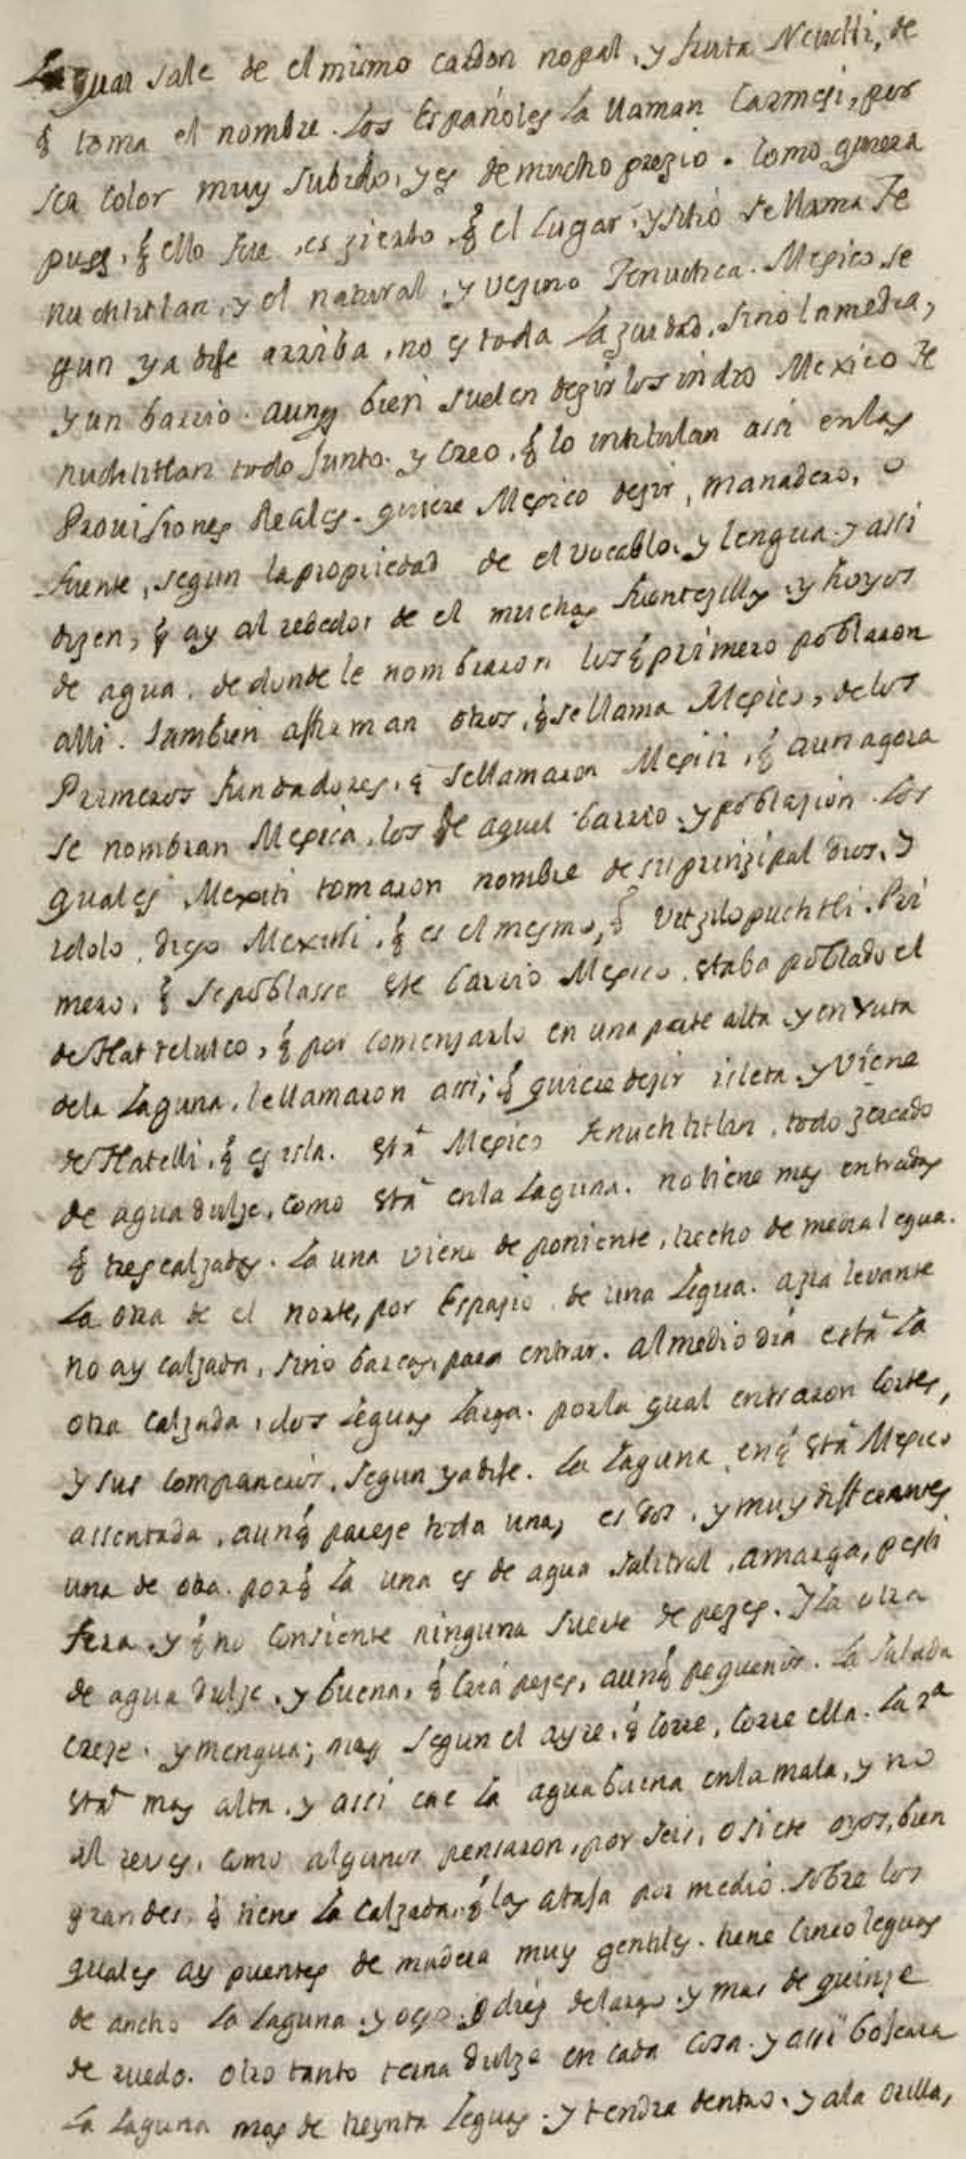 La qual sale de el mismo cardon nopal, y fruta Nenchtli, de
q̃ toma el nombre. Los Españoles la llaman Carmesi, por
sea color muy subido, y es de mucho prezio. Como quiera
pues, q̃ ello sea, es zierto, q̃ el lugar, y sitio se llama Te
nuchtitlan, y el natural, y vezino Tenuchca. Mexico se
gun ya dije arriba, no es toda la ziudad, sino la media,
y un barrio. aunq̃ bien suelen dezir los indio Mexico Te
nuchtitlan todo junto. y creo, q̃ lo intitulan assi en las
Provisiones Reales. quiere Mexico dezir, manadero, o
fuente, segun la propriedad de el vocablo, y lengua. y assi
dizen, q̃ ay al rededor de el muchas fuentezillas, y hoyos
de agua, de donde le nombraron los q̃ primero poblaron
alli. Tambien afirman otros, q̃ se llama Mexico, de los
Primeros fundadores, q̃ se llamaron Mexiti, q̃ aun agora
se nombran Mexica, los de aquel barrio, y poblazion. Los
quales Mexiti tomaron nombre de su prinzipal dios, y
idolo, digo Mexitli, q̃ es el mesmo, q̃ Vitzilopuchtli. Pri
mero, q̃ se poblasse este barrio Mexico, estaba poblado el
de Tlatelulco, q̃ por comenzarlo en una parte alta, y enxuta
de la Laguna, le llamaron assi; q̃ quiere dezir isleta, y viene
de Tlatelli, q̃ es isla. está Mexico Tenuchtitlan, todo zercado
de agua dulze, como está en la Laguna. no tiene mas entradas
q̃ tres calzadas. La una viene de poniente, trecho de media legua.
La otra de el norte, por Espazio de una Legua. azia levante
no ay calzada, sino barcas, para entrar. al medio dia está la
otra calzada, dos Leguas larga. por la qual entraron Cortes,
y sus Compañeros, segun ya dije. La Laguna, en q̃ está Mexico
assentada, aunq̃ pareze toda una, es dos, y muy differentes
una de otra. porq̃ la una es de agua salitral, amarga, pesti
fera, y q̃ no consiente ninguna suerte de pezes. Y la otra
de agua dulze, y buena, q̃ cria pezes, aunq̃ pequeños. La salada
creze, y mengua; mas segun el ayre, q̃ corre, corre ella. La 2ª
está mas alta, y assi cae la agua buena en la mala, y no
al reves, como algunos pensaron, por seis, o siete ojos, bien
grandes, q̃ tiene la calzada, q̃ las ataja por medio. sobre los
quales ay puentes de madera muy gentiles. tiene Cinco leguas
de ancho la Laguna, y ocho, o diez de largo, y mas de quinze
de ruedo. Otro tanto terna dulze en cada cosa. y assi bojeara
La Laguna mas de treynta Leguas. y tendra dentro, y a la orilla,